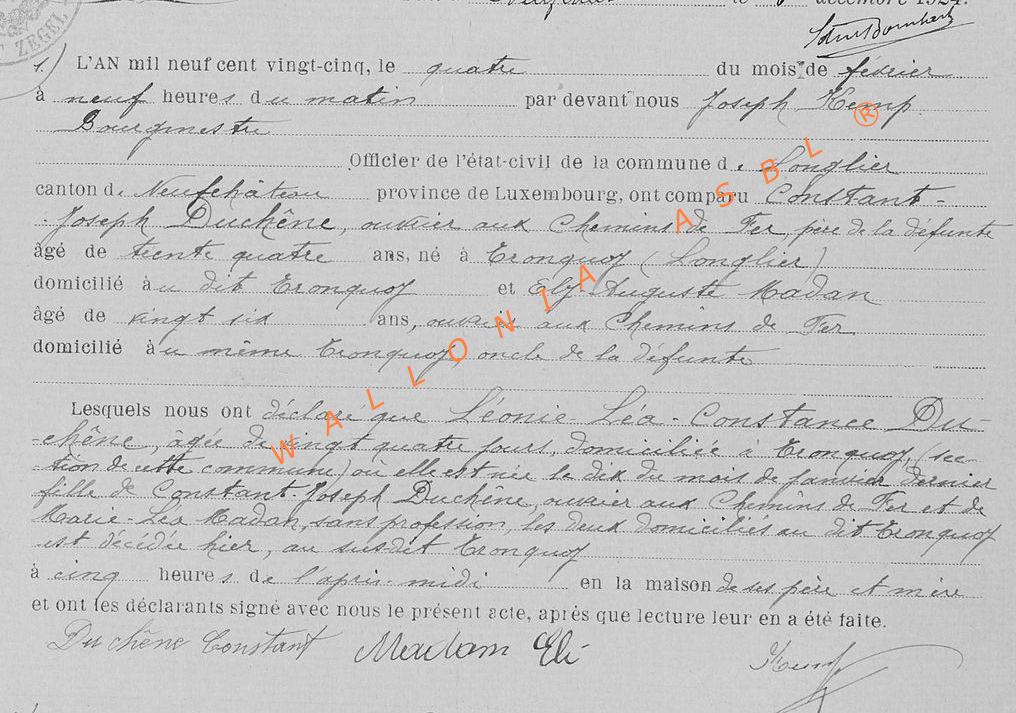 le décembre 1924.
ZEGEL
1) L'AN mil neuf cent vingt-cinq, le quatre du mois de février
à neuf heures du matin par devant nous Joseph Kemp
Bourgmestre
Officier de l'état-civil de la commune de Longlier
canton de Neufchâteau province de Luxembourg, ont comparu Constant-
Joseph Duchêne, ouvrier aux Chemins de Fer, père de la défunte
âgé de trente quatre ans, né à Tronquoy (Longlier)
domicilié au dit Tronquoy et Ely-Auguste Madan
âgé de vingt six ans, ouvrier aux Chemins de Fer
domicilié au même Tronquoy, oncle de la défunte
Lesquels nous ont déclaré que Léonie-Léa-Constance Du-
-chêne, âgée de vingt quatre jours, domiciliée à Tronquoy, (sec-
-tion de cette commune) où elle est née le dix du mois de janvier dernier
fille de Constant-Joseph Duchêne, ouvrier aux Chemins de Fer et de
Marie-Léa Madan, sans profession, les deux domiciliés au dit Tronquoy
est décédée hier, au susdit Tronquoy
à cinq heures de l'après-midi en la maison de ses père et mère
et ont les déclarants signé avec nous le présent acte, après que lecture leur en a été faite.
Duchêne Constant Madam Eli Kemp
WALLONIA ASBL ®